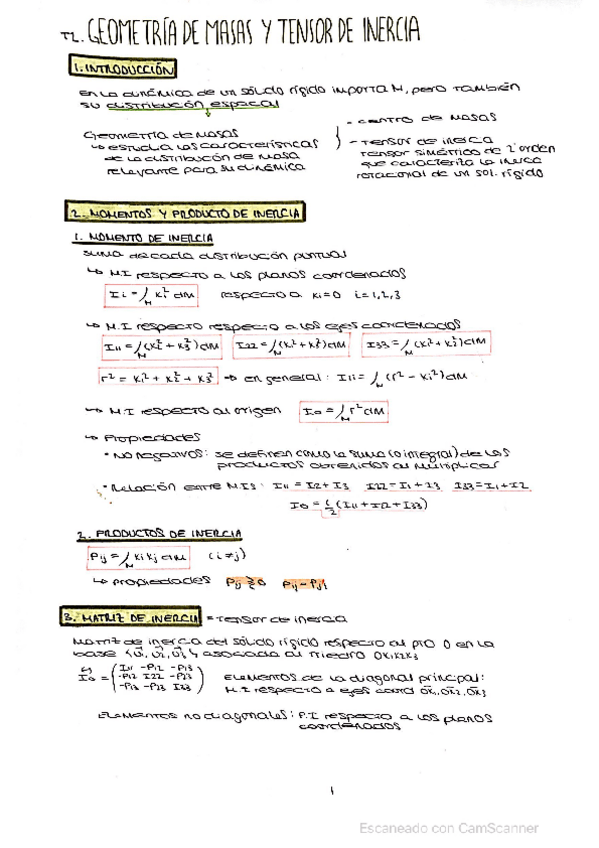 T2. GEOMETRÍA DE MASAS Y TENSOR DE INERCIA
1. INTRODUCCIÓN
En la dinámica de un sólido rígido importa M, pero también
su distribución espacial
Geometría de masas
↳ estudia las características
de la distribución de masa
relevante para su dinámica
- centro de masas
- Tensor de inercia
Tensor simétrico de 2º orden
que caracteriza la inercia
rotacional de un sol. rígido
2. MOMENTOS Y PRODUCTO DE INERCIA
1. MOMENTO DE INERCIA
suma de cada distribución puntual
↳ M.I respecto a los planos coordenados
Ii = ∫M xi² dM respecto a xi=0 i=1,2,3
↳ M.I respecto respecto a los ejes coordenados
I11 = ∫M (x2² + x3²) dM I22 = ∫M (x1² + x3²) dM I33 = ∫M (x1² + x2²) dM
r² = x1² + x2² + x3² → en general: Iii = ∫M (r² - xi²) dM
↳ M.I respecto al origen Io = ∫M r² dM
↳ Propiedades
• No negativos: se definen como la suma (o integral) de los
productos obtenidos al multiplicar
• Relación entre M.I s: I11 = I2 + I3 I22 = I1 + I3 I33 = I1 + I2
Io = 1/2 (I11 + I22 + I33)
2. PRODUCTOS DE INERCIA
Pij = ∫M xi xj dM (i≠j)
↳ propiedades Pij ≷ 0 Pij = Pji
3. MATRIZ DE INERCIA = Tensor de inercia
Matriz de inercia del sólido rígido respecto al pto O en la
base {u1, u2, u3} asociada al triedro OX1X2X3
Io = ( I11 -P12 -P13
-P12 I22 -P23
-P13 -P23 I33 )
Elementos de la diagonal principal:
M.I respecto a ejes coord OX1, OX2, OX3
Elementos no diagonales: P.I respecto a los planos
coordenados
1
Escaneado con CamScanner